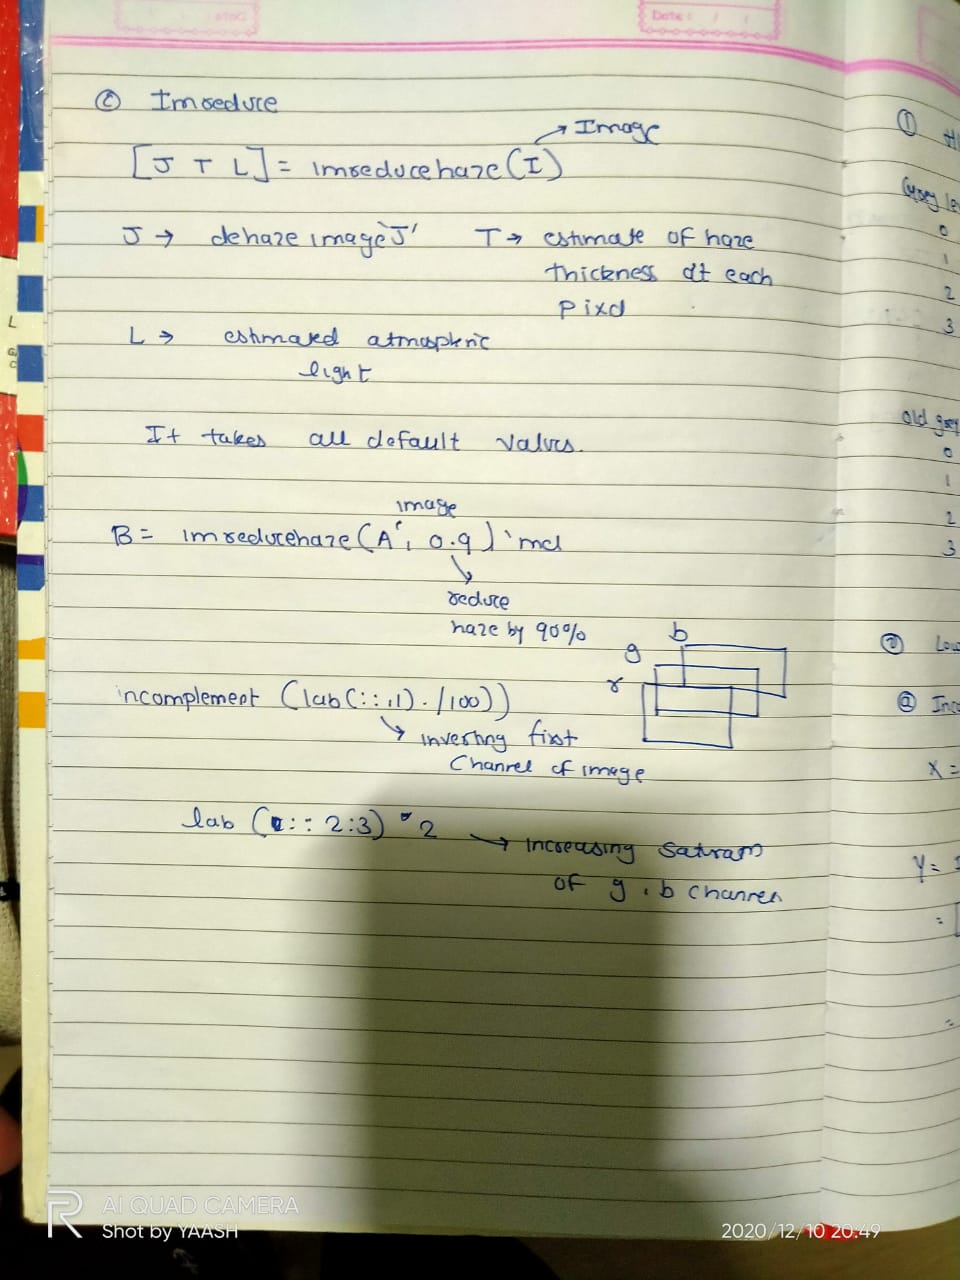 Date : / /
© Imreduce
→ Image
[J T L] = imreducehaze (I)
J → dehaze image 'J' T → estimate of haze
thickness at each
pixel
L → estimated atmospheric
light
It takes all default values.
image
B = imreducehaze (A, 0.9)
reduce
haze by 90%
b
g
r
incomplement (lab(::,1)./100))
→ inverting first
Channel of image
lab ( :: 2:3) * 2
→ increasing
of g, b channel
①
Grey le
0
1
2
3
Old grey
0
1
2
3
② Low
ⓐ Inc
X =
Y =
=
L
G
C
AI QUAD CAMERA
Shot by YAASH
2020/12/10 20:49